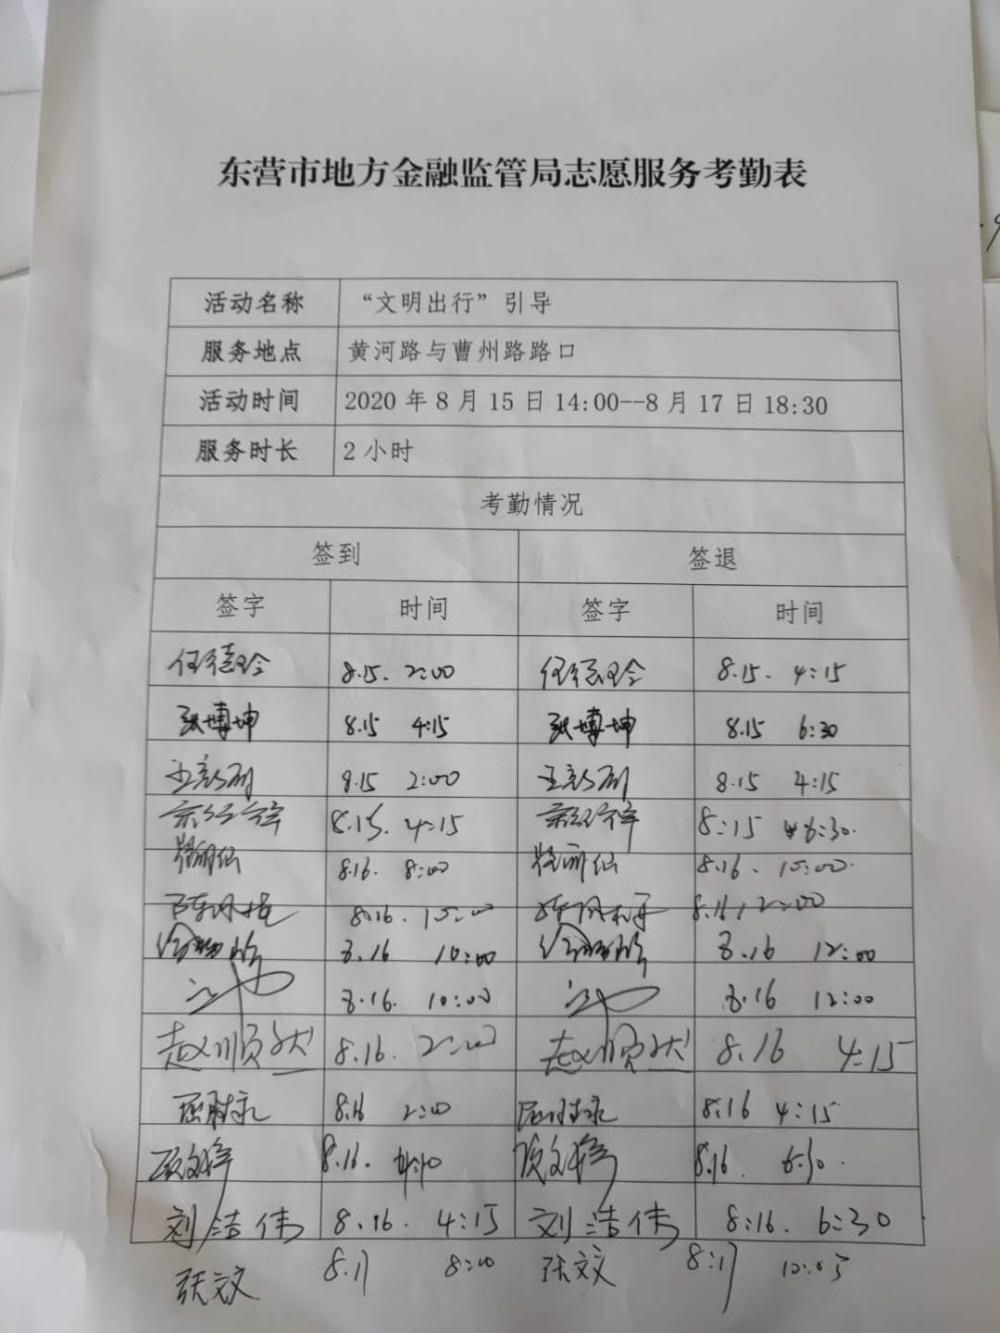 东营市地方金融监管局志愿服务考勤表
活动名称 “文明出行”引导
服务地点 黄河路与曹州路路口
活动时间 2020 年 8 月 15 日 14:00--8 月 17 日 18:30
服务时长 2 小时
考勤情况
签到 签退
签字 时间 签字 时间
8.15. 2:00 8.15. 4:15
张博坤 8.15 4:15 张博坤 8.15 6:30
8.15 2:00 8.15 4:15
8.15. 4:15 8:15 6:30.
8.16. 8:00 8.16. 10:00.
8.16. 10:00 8.16, 12:00
8.16 10:00 8.16 12:00
8.16. 10:00 8.16 12:00
赵顺然 8.16. 2:00 赵顺然 8.16 4:15
8.16 2:00 8.16 4:15
8.16. 8.16. 6:30.
刘浩伟 8.16. 4:15 刘浩伟 8:16. 6:30
张文 8.17 8:00 张文 8:17 10:05